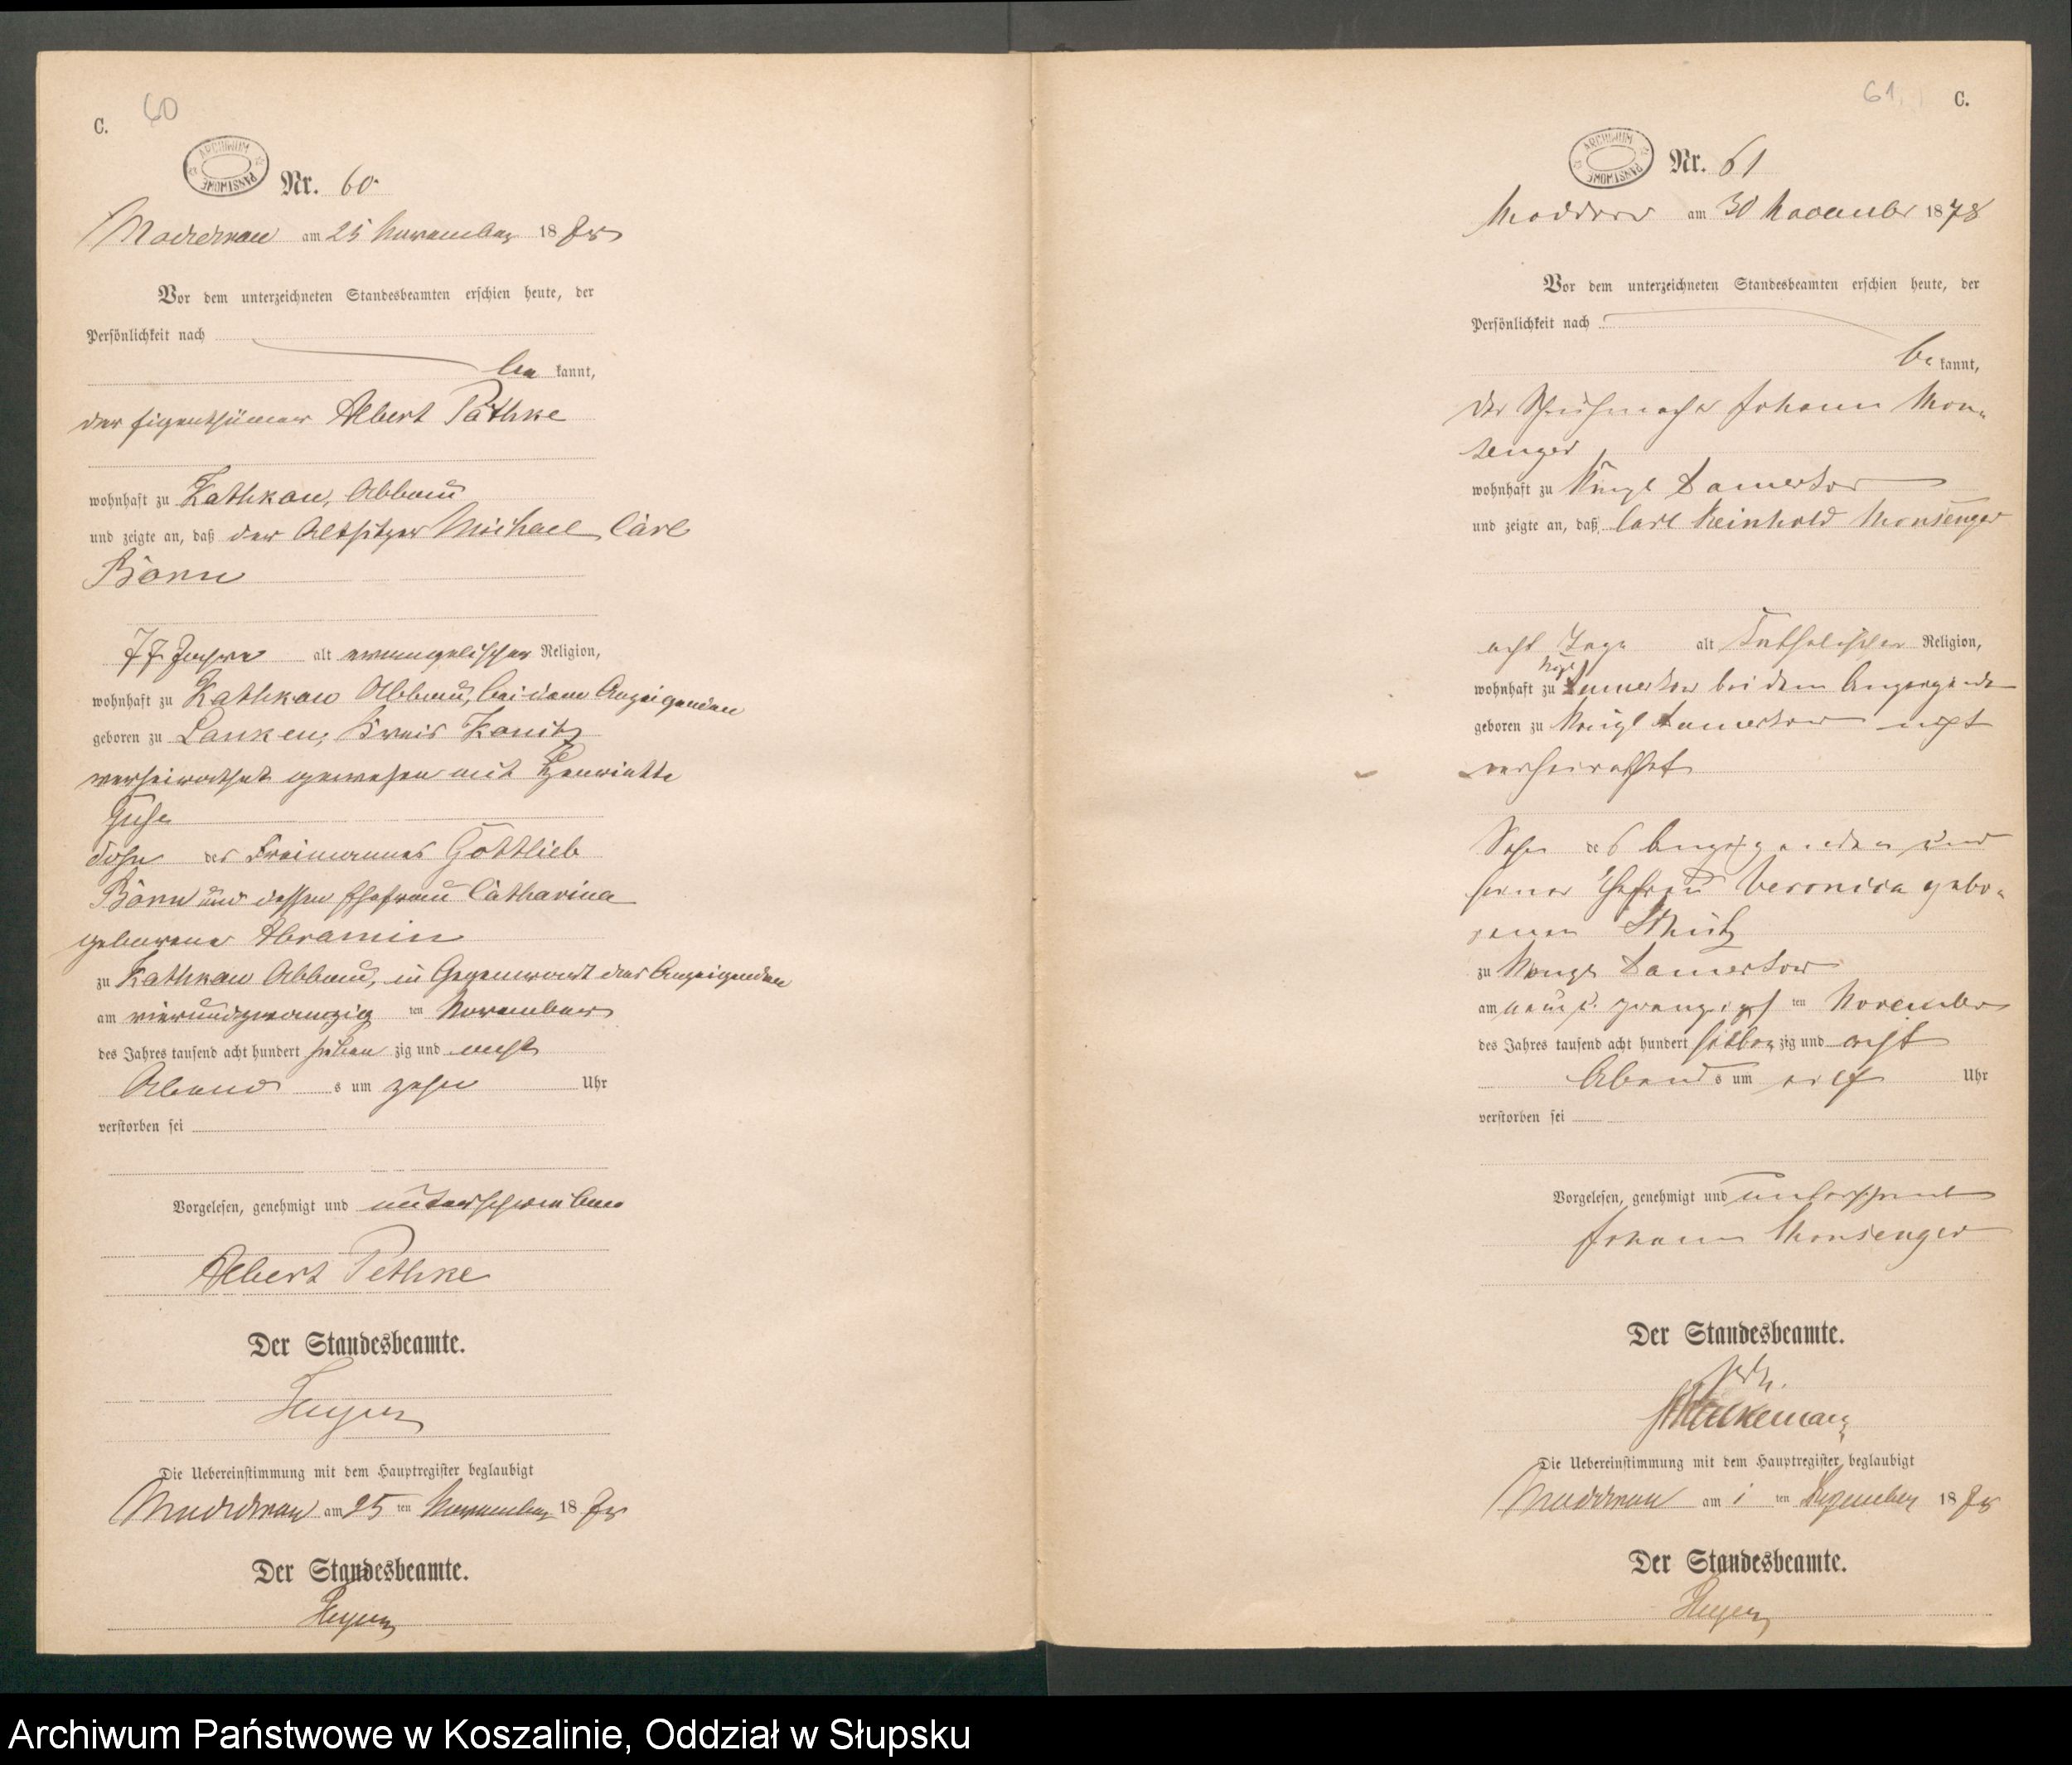 C.
60
ARCHIWUM PAŃSTWOWE
Nr. 60.
am 25 November 1878
Vor dem unterzeichneten Standesbeamten erschien heute, der
Persönlichkeit nach
be kannt,
der Eigenthümer Albert Pathke
wohnhaft zu Kathkow, Abbau
und zeigte an, daß der Altsitzer Michael Carl
77 Jahre alt evangelischer Religion,
wohnhaft zu Kathkow Abbau, bei dem Anzeigenden
geboren zu Lanken, Kreis
verheirathet gewesen mit Henriette
Guhse
Sohn des Freimannes Gottlieb
und dessen Ehefrau Catharina
geborene Abramin
zu Kathkow Abbau, in Gegenwart des Anzeigenden
am vierundzwanzig ten November
des Jahres tausend acht hundert sieben zig und acht
Abend s um zehn Uhr
verstorben sei
Vorgelesen, genehmigt und unterschrieben
Albert Pethke
Der Standesbeamte.
Die Uebereinstimmung mit dem Hauptregister beglaubigt
am 25 ten November 1878
Der Standesbeamte.
61.
C.
ARCHIWUM PAŃSTWOWE
Nr. 61
am 30 November 1878
Vor dem unterzeichneten Standesbeamten erschien heute, der
Persönlichkeit nach
be kannt,
der Schuhmacher Johann Mon-
senger
wohnhaft zu Königl Damerkow
und zeigte an, daß Carl Reinhold Monsenger
acht Tage alt katholischer Religion,
wohnhaft zu Königl Damerkow bei dem Anzeigenden
geboren zu Königl Damerkow nicht
verheirathet
Sohn des Anzeigenden und
seiner Ehefrau Veronica gebo-
renen Schütz
zu Königl Damerkow
am neun u. zwanzigst ten November
des Jahres tausend acht hundert sieben zig und acht
Abend s um elf Uhr
verstorben sei
Vorgelesen, genehmigt und unterschrieben
Johann Monsenger
Der Standesbeamte.
Die Uebereinstimmung mit dem Hauptregister beglaubigt
am 1 ten Dezember 1878
Der Standesbeamte.
Archiwum Państwowe w Koszalinie, Oddział w Słupsku